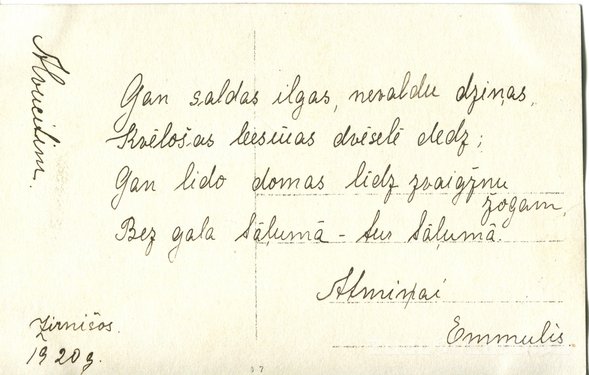 Alvucītim.
Gan saldas ilgas, nevaldu dziņas,
Kvēlošas liesmas dvēselē dedz;
Gan lido domas līdz zvaigžņu
žogam,
Bez gala tāļumā – tur tāļumā.
Atmiņai
Emmulis
Zirnišos.
1920g.